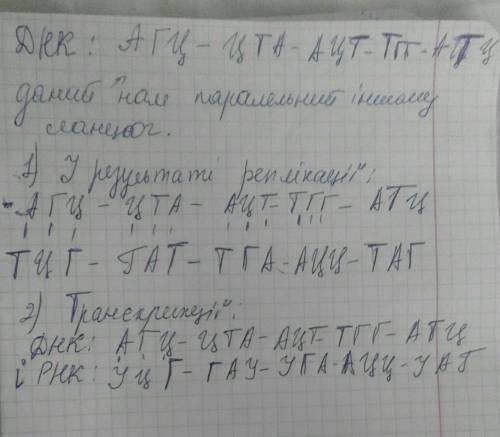 ДНК: АГЦ - ЦТА - АЦТ - ТГГ - АТЦ
даний нам паралельний іншому
ланцюг.
1) У результаті реплікації:
- АГЦ - ЦТА - АЦТ - ТГГ - АТЦ
ТЦГ - ГАТ - ТГА - АЦЦ - ТАГ
2) Транскрипції:
ДНК: АГЦ - ЦТА - АЦТ - ТГГ - АТЦ
іРНК: УЦГ - ГАУ - УГА - АЦЦ - УАГ